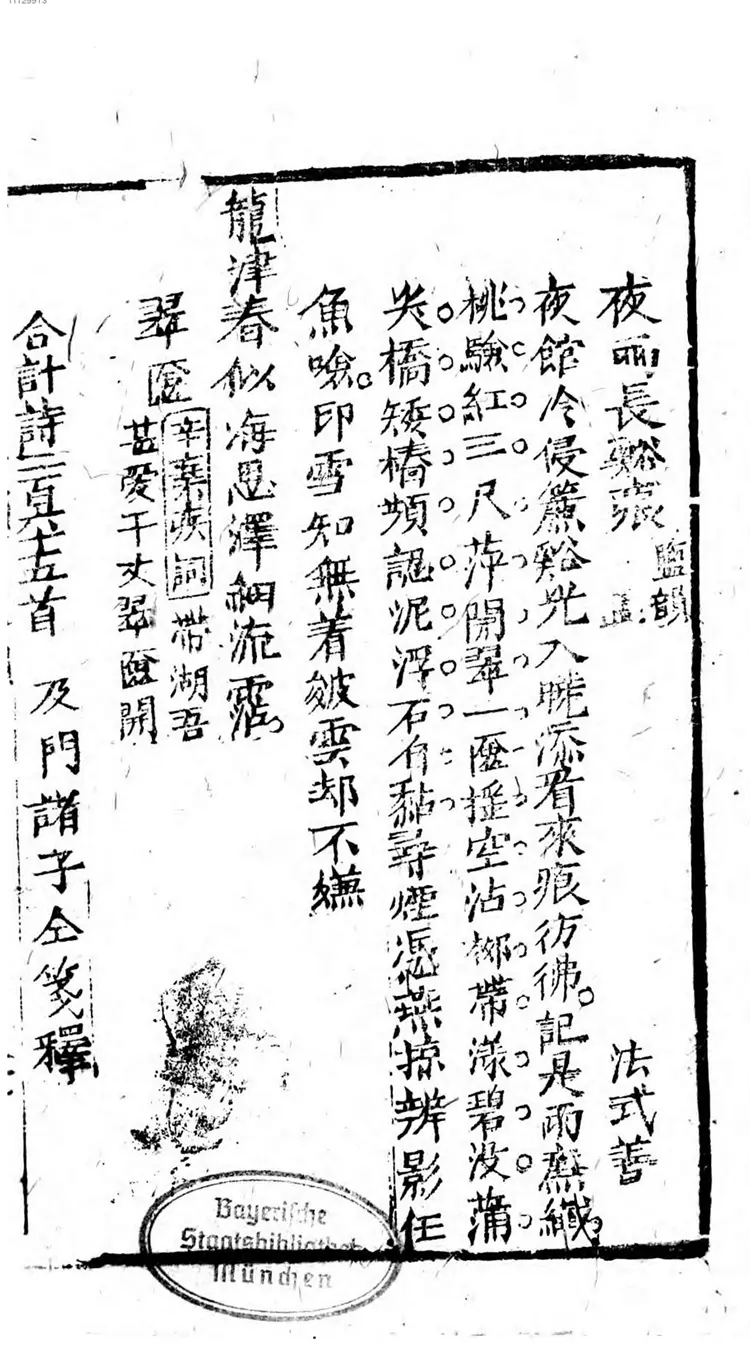 夜雨長谿痕 鹽韻 法式善
夜館冷侵簾谿光入曉添看來痕彷彿。記是雨廉纖。
桃驗紅三尺萍開翠一奩搖空沾柳帶漾碧沒蒲
尖橋矮橋頻認泥浮石自黏尋煙憑燕掠辨影任
魚噞。印雪知無着皴雲却不嫌
龍津春似海恩澤細流霑。
翠奩 辛棄疾詞 帶湖吾
甚愛千丈翠奩開
合計詩二百五首 及門諸子仝箋釋
Bayerische
Staatsbibliothek
München
11129973